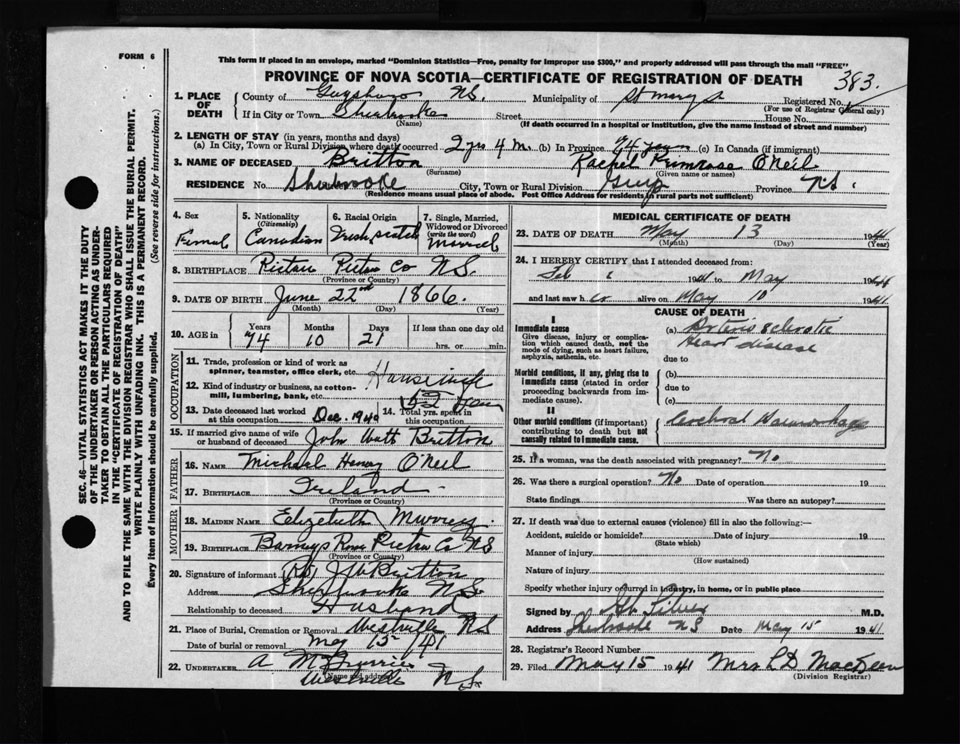 FORM 6
This form if placed in an envelope, marked "Dominion Statistics—Free, penalty for improper use $300," and properly addressed will pass through the mail "FREE"
PROVINCE OF NOVA SCOTIA—CERTIFICATE OF REGISTRATION OF DEATH
383.
SEC. 46—VITAL STATISTICS ACT MAKES IT THE DUTY
OF THE UNDERTAKER OR PERSON ACTING AS UNDER-
TAKER TO OBTAIN ALL THE PARTICULARS REQUIRED
IN THE "CERTIFICATE OF REGISTRATION OF DEATH"
AND TO FILE THE SAME WITH THE DIVISION REGISTRAR WHO SHALL ISSUE THE BURIAL PERMIT.
WRITE PLAINLY WITH UNFADING INK. THIS IS A PERMANENT RECORD.
Every item of information should be carefully supplied. (See reverse side for instructions.)
1. PLACE OF DEATH
County of Guysboro N.S. Municipality of St Marys Registered No.
(For use of Registrar General only)
If in City or Town Sherbrooke Street House No.
(Name) (If death occurred in a hospital or institution, give the name instead of street and number)
2. LENGTH OF STAY (in years, months and days)
(a) In City, Town or Rural Division where death occurred 2 yrs 4 m. (b) In Province 74 years (c) In Canada (if immigrant)
3. NAME OF DECEASED Britton Rachel Primrose O'Neil
(Surname) (Given name or names)
RESIDENCE No. Sherbrooke City, Town or Rural Division Guys Province N.S.
(Residence means usual place of abode. Post Office Address for residents in rural parts not sufficient)
4. Sex Female
5. Nationality (Citizenship) Canadian
6. Racial Origin Irish, Scotch
7. Single, Married, Widowed or Divorced (write the word) Married
8. BIRTHPLACE Pictou Pictou Co N.S.
(Province or Country)
9. DATE OF BIRTH June 22nd 1866.
(Month) (Day) (Year)
10. AGE in Years 74 Months 10 Days 21 If less than one day old
hrs. or min.
OCCUPATION
11. Trade, profession or kind of work as spinner, teamster, office clerk, etc. Housewife
12. Kind of industry or business, as cotton-mill, lumbering, bank, etc.
13. Date deceased last worked at this occupation Dec. 1940 14. Total yrs. spent in this occupation
15. If married give name of wife or husband of deceased John Watt Britton
FATHER
16. NAME Michael Henry O'Neil
17. BIRTHPLACE Ireland
(Province or Country)
MOTHER
18. MAIDEN NAME Elizabeth Murray.
19. BIRTHPLACE Barneys River Pictou Co NS
(Province or Country)
20. Signature of informant J W Britton
Address Sherbrooke N.S.
Relationship to deceased Husband
21. Place of Burial, Cremation or Removal Westville N S
Date of burial or removal May 15 /41
22. UNDERTAKER A
(Name and address) Westville N.S.
MEDICAL CERTIFICATE OF DEATH
23. DATE OF DEATH May 13 1941
(Month) (Day) (Year)
24. I HEREBY CERTIFY that I attended deceased from:
Feb 1941 to May 1941
and last saw her alive on May 10 1941
CAUSE OF DEATH
I
Immediate cause
Give disease, injury or complication which caused death, not the mode of dying, such as heart failure, asphyxia, asthenia, etc.
(a) Arterio sclerotic
Heart disease
due to
Morbid conditions, if any, giving rise to immediate cause (stated in order proceeding backwards from immediate cause).
(b)
due to
(c)
II
Other morbid conditions (if important) contributing to death but not causally related to immediate cause.
Cerebral Haemorrhage
25. If a woman, was the death associated with pregnancy? No
26. Was there a surgical operation? No Date of operation 19
State findings Was there an autopsy?
27. If death was due to external causes (violence) fill in also the following:—
Accident, suicide or homicide? Date of injury 19
(State which)
Manner of injury
(How sustained)
Nature of injury
Specify whether injury occurred in industry, in home, or in public place
Signed by M.D.
Address Sherbrooke N S Date May 15 1941
28. Registrar's Record Number
29. Filed May 15 1941 Mrs L D MacLean
(Division Registrar)